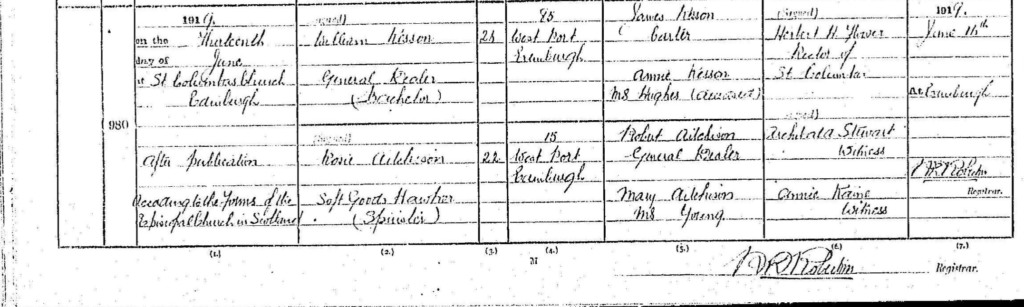 1919.
on the Thirteenth
day of June
at St Columbas Church
Edinburgh
After Publication
According to the Forms of the
Episcopal Church in Scotland
980
(Signed)
William Kesson
General Dealer
(Bachelor)
(Signed)
Rosie Aitchison
Soft Goods Hawker
(Spinster)
22
95
West Port
Edinburgh
15
West Port
Edinburgh
James Kesson
Carter
Annie Kesson
MS Hughes (deceased)
Robert Aitchison
General Dealer
Mary Aitchison
MS Young
(Signed)
Herbert H Flower
Rector of
St Columba
(Signed)
Archibald Stewart
Witness
Annie Kane
Witness
1919.
June 14th
At Edinburgh
Registrar.
(1.)
(2.)
(3.)
(4.)
(5.)
(6.)
(7.)
M
Registrar.